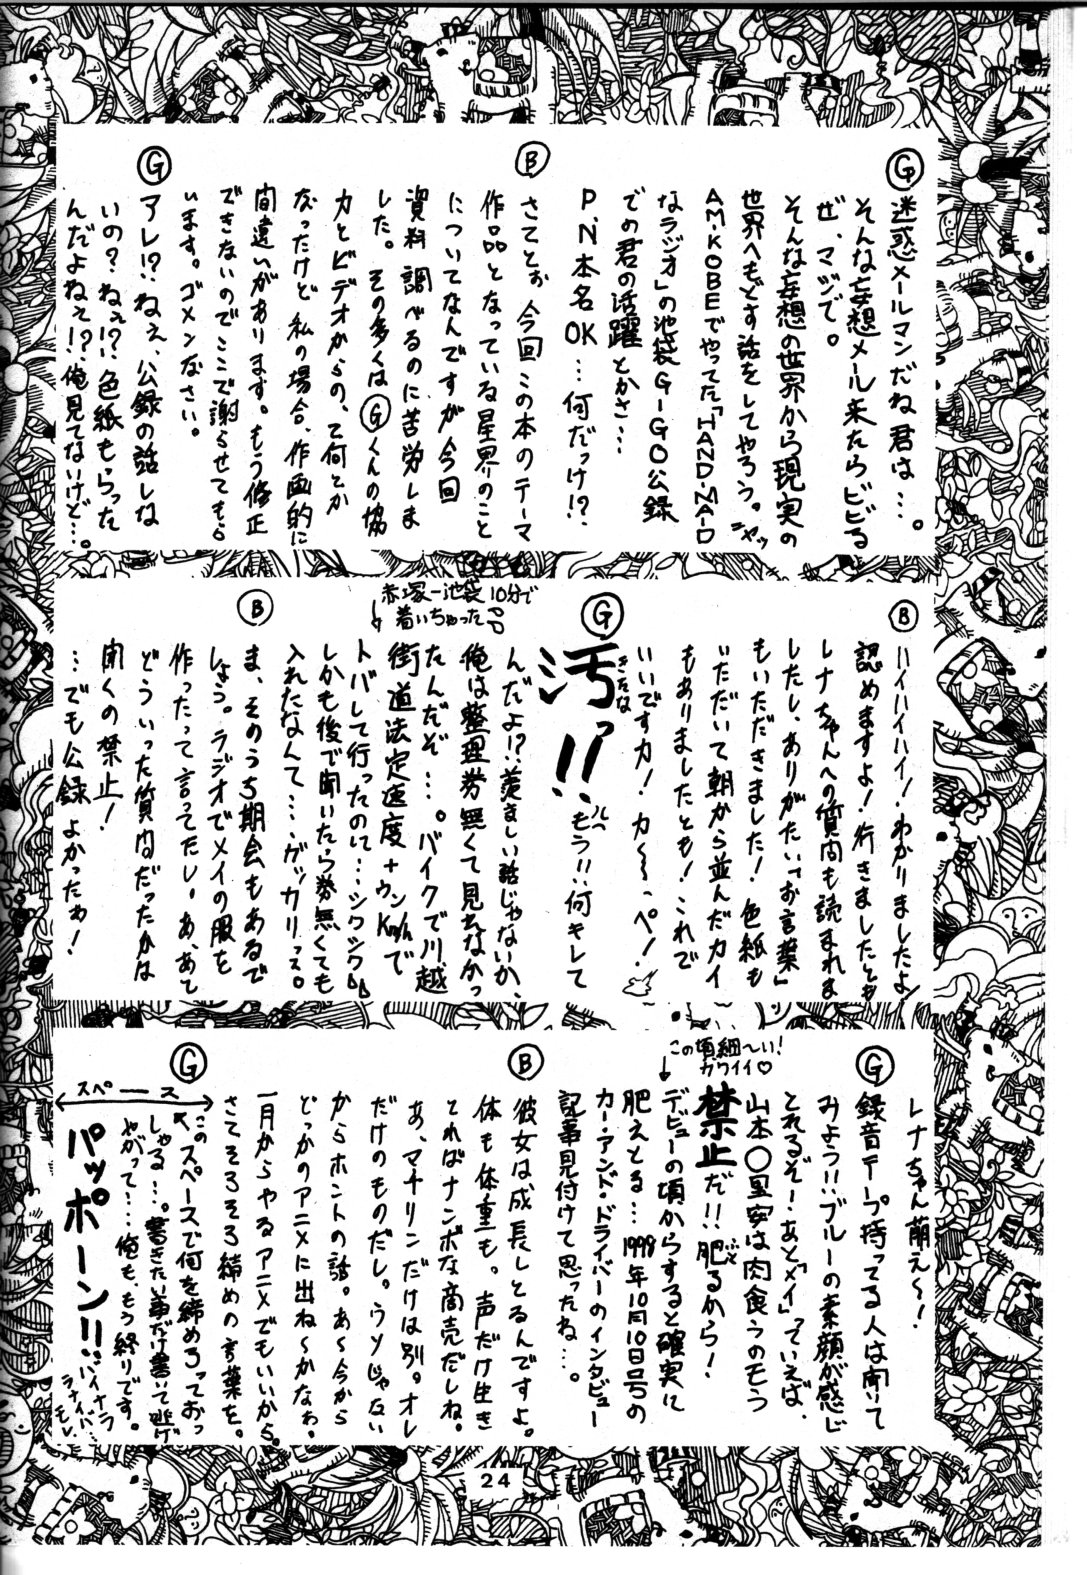 Ⓖ
迷惑メールマンだね君は…。
そんな妄想メール来たらビビる
ぜ、マジで。
そんな妄想の世界から現実の
世界へもどす話をしてやろう。ニヤッ
AM・KOBEでやってた「HAND・MAID
なラジオ」の池袋G-GO公録
での君の活躍とかさ…
P.N本名OK…何だっけ!?
Ⓑ
さてとぉ今回この本のテーマ
作品となっている星界のこと
についてなんですが今回
資料調べるのに苦労しま
した。その多くはⒼくんの協
力とビデオからの、で何とか
なったけど私の場合、作画的に
間違いがあります。もう修正
できないのでここで謝らせてもら
います。ゴメンなさい。
Ⓖ
アレ!?ねぇ、公録の話しな
いの?ねぇ!?色紙もらった
んだよねぇ!?俺見てないけど…。
Ⓑ
ハイハイハイ!わかりましたよ!
認めますよ!行きましたとも
レナちゃんへの質問も読まれま
したし、ありがたい「お言葉」
もいただきました!色紙も
いただいて朝から並んだカイ
もありましたとも!これで
いいですカ!カ〜〜っペ!
Ⓖ
汚っ!!もう!!何キレて
きたな
んだよ!?羨ましい話じゃないか…
俺は整理券無くて見れなかっ
たんだぞ…。バイクで川越
街道法定速度+ウンKm/hで
赤塚-池袋10分で
着いちゃった
トバして行ったのに…シクシク
しかも後で聞いたら券無くても
入れたなんて…ゲッカリってる。
Ⓑ
ま、そのうち期会もあるで
しょう。ラジオでメイの服を
作ったって言ってたし。あ、あと
どういった質問だったかは
聞くの禁止!
…でも公録よかったわ!
レナちゃん萌え〜!
Ⓖ
録音テープ持ってる人は聞いて
みよう!!ブルーの素顔が感じ
とれるぞ!あと「メイ」っていえば、
山本○里安は肉食うのもう
禁止だ!!肥るから!
この頃細〜い!
カワイイ♡
デビューの頃からすると確実に
肥えとる…1998年10月10日号の
カー・アンド・ドライバーのインタビュー
記事見付けて思ったね…。
Ⓑ
彼女は成長しとるんですよ。
体も体重も。声だけ生き
とればナンボな商売だしね。
あ、マチリンだけは別。オレ
だけのものだし。ウソじゃない
からホントの話。あ〜今から
どっかのアニメに出ね〜かなぁ。
一月からやるアニメでもいいから。
さてそろそろ締めの言葉を。
Ⓖ
スペース
このスペースで何を締めろっておっ
しゃる…。書きたい事だけ書いて逃げ
やがって…俺も、もう終りです。
パッポーン!!
バイナラ
ラナイバ…
24